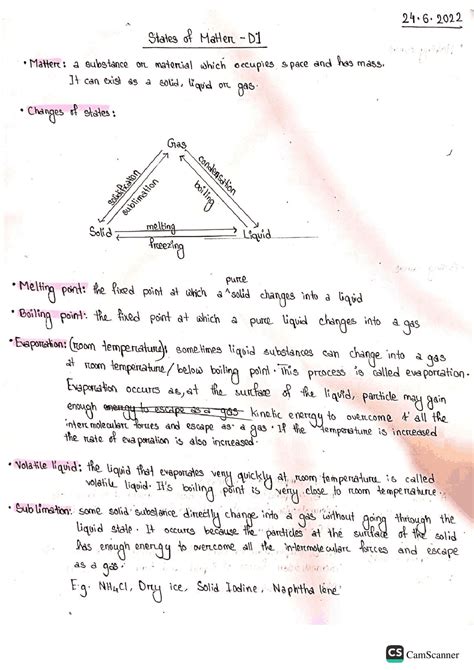 24.6.2022
States of Matter - D1
• Matter: a substance or material which occupies space and has mass.
It can exist as a solid, liquid or gas.
• Changes of states:
Gas
solidification
sublimation
condensation
boiling
Solid
melting
freezing
Liquid
pure
• Melting point: the fixed point at which a ^ solid changes into a liquid
• Boiling point: the fixed point at which a pure liquid changes into a gas
• Evaporation: (room temperature), sometimes liquid substances can change into a gas
at room temperature / below boiling point. This process is called evaporation.
Evaporation occurs as, at the surface of the liquid, particle may gain
enough energy to escape as a gas kinetic energy to overcome all the
intermolecular forces and escape as a gas. If the temperature is increased
the rate of evaporation is also increased.
• Volatile liquid: the liquid that evaporates very quickly at room temperature is called
volatile liquid. It's boiling point is very close to room temperature.
• Sublimation: some solid substance directly change into a gas without going through the
liquid state. It occurs because the particles at the surface of the solid
has enough energy to overcome all the intermolecular forces and escape
as a gas.
E.g. NH4Cl, Dry ice, Solid Iodine, Naphthalene
CS CamScanner